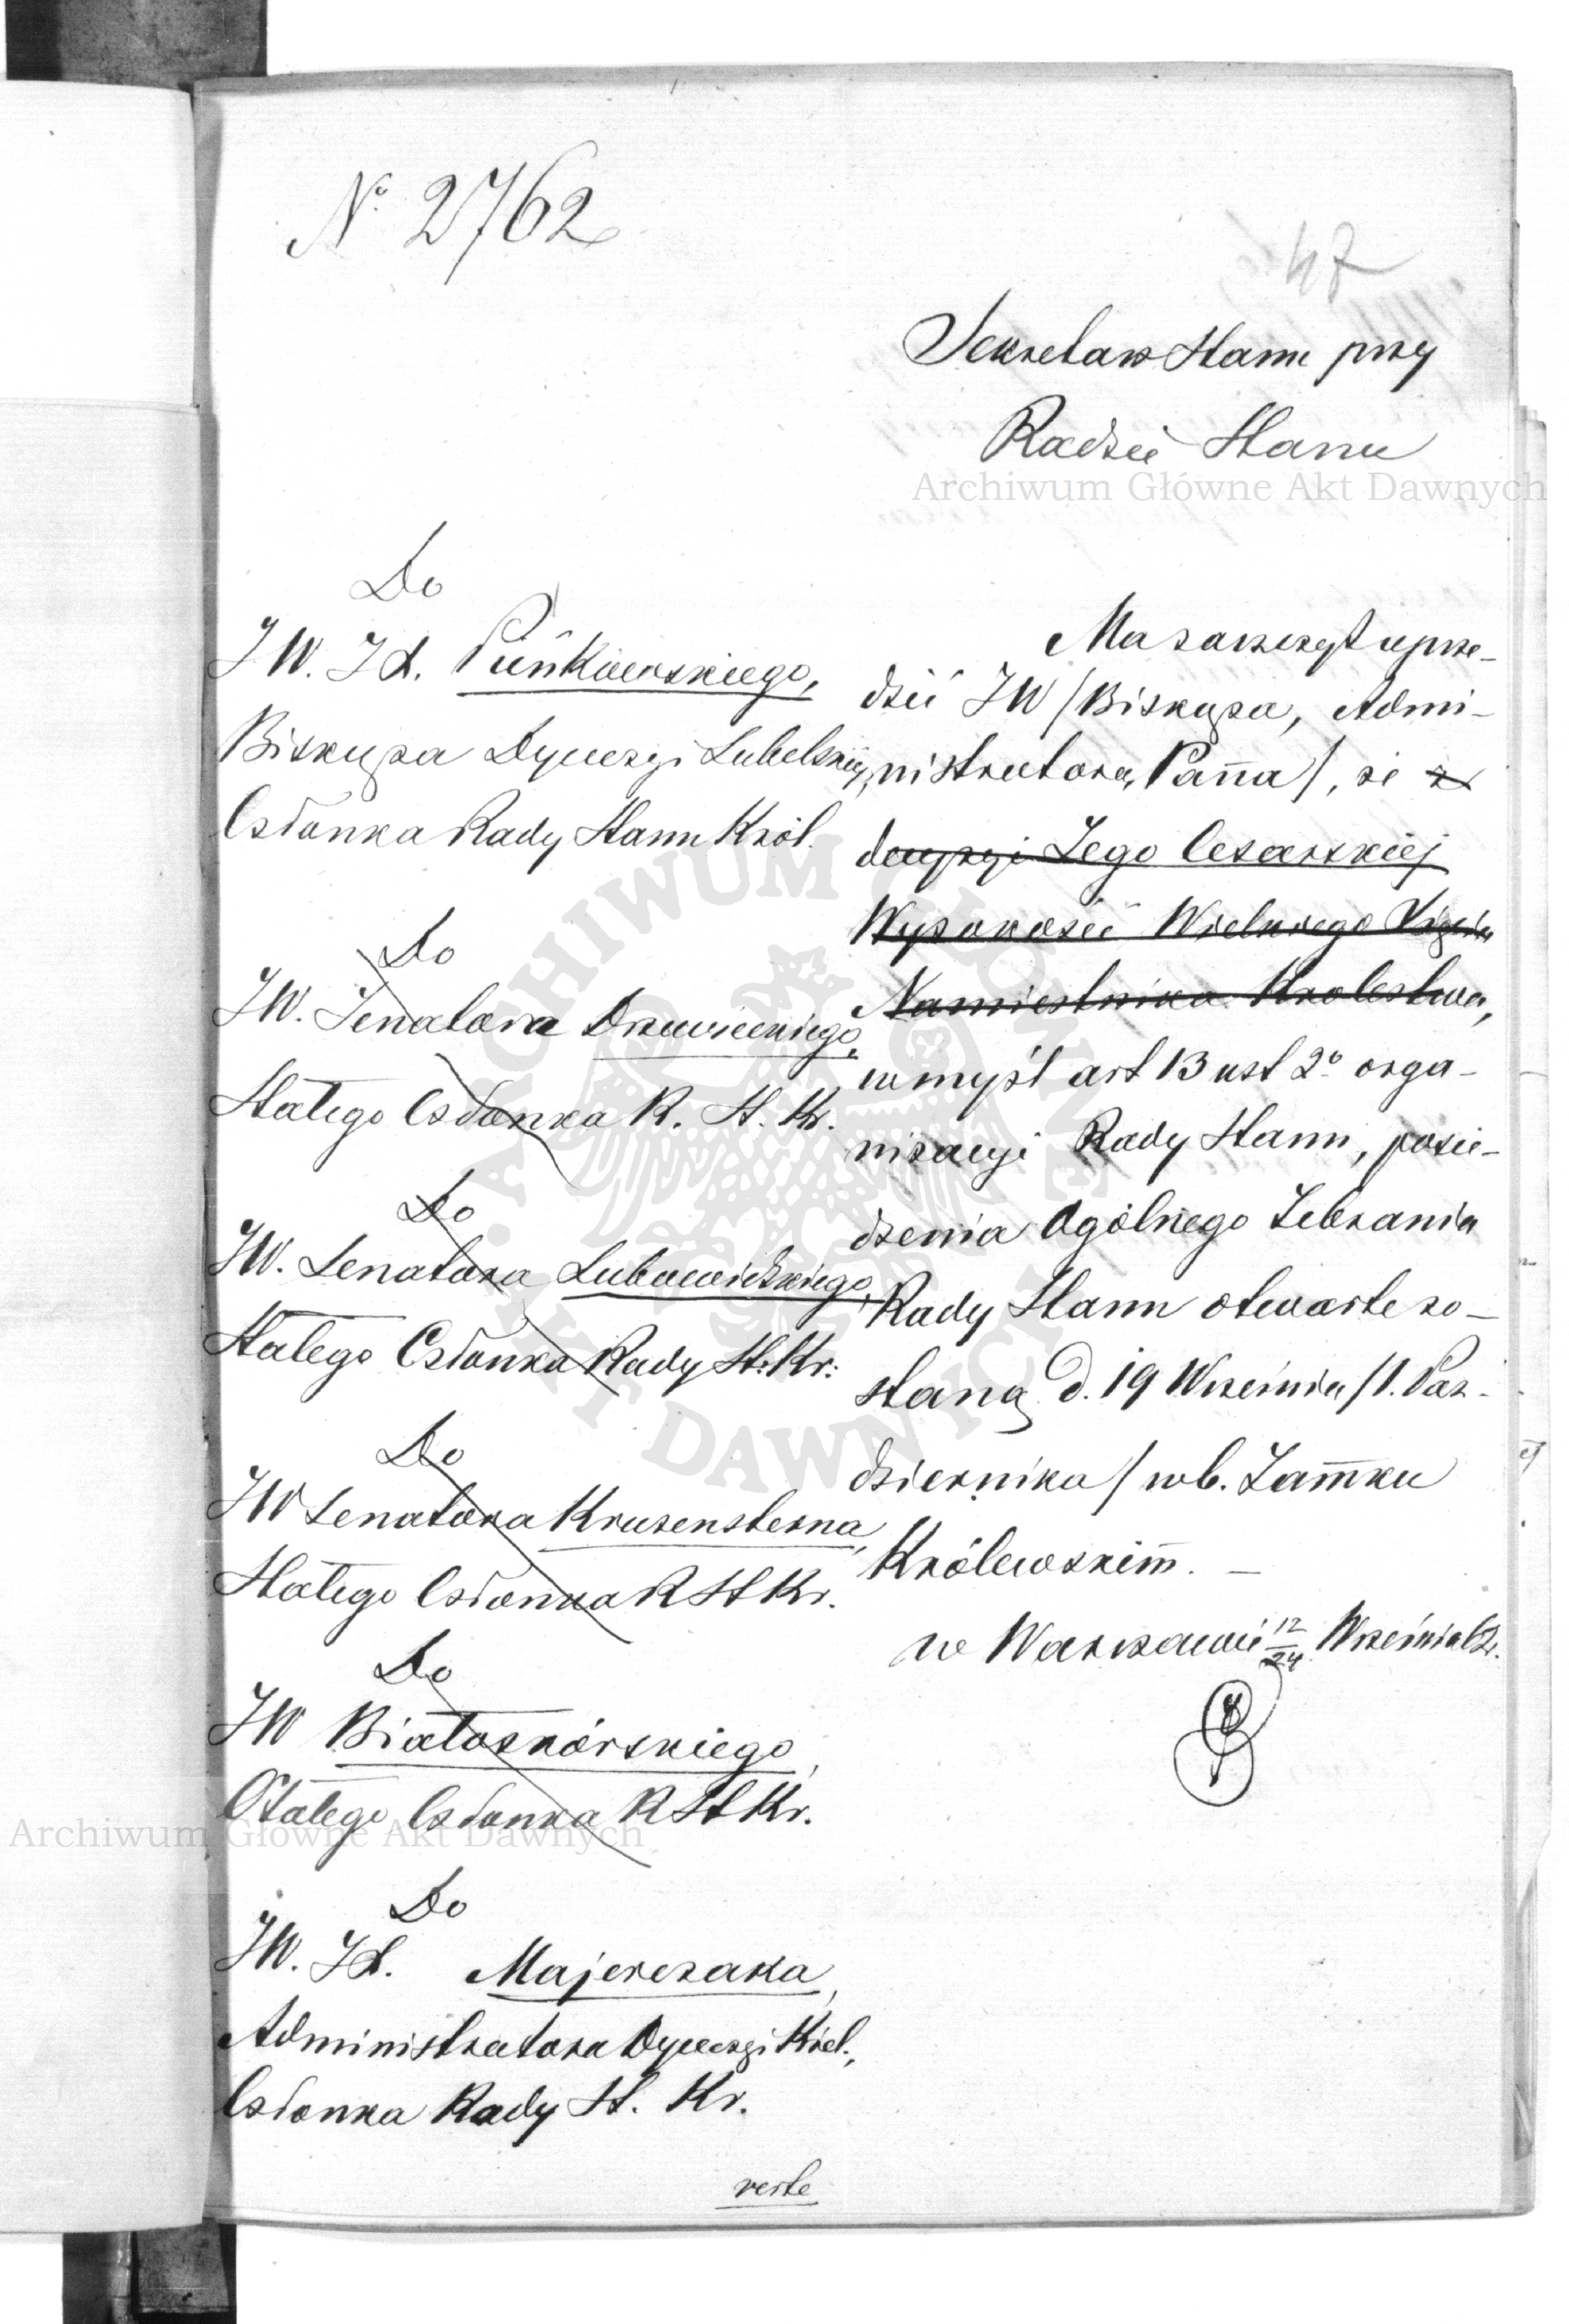 № 2762
47
Sekretarz Stanu przy
Radzie Stanu
Do
JW. JX. Pieńkowskiego,
Biskupa Dyecezyi Lubelskiej,
Członka Rady Stanu Król.
Do
JW. Senatora Drzewieckiego,
Stałego Członka R. St. Kr.
Do
JW. Senatora Lubowidzkiego,
Stałego Członka Rady St: Kr:
Do
JW Senatora Kruzensterna,
Stałego Członka R St Kr.
Do
JW Białoskórskiego,
Stałego Członka R St Kr.
Do
JW. JX. Majerczaka,
Administratora Dyecezyi Kiel.,
Członka Rady St. Kr.
Ma zaszczyt uprze-
dzić JW /Biskupa, Admi-
nistratora, Pana/, że z
decyzyi Jego Cesarskiej
Wysokości Wielkiego Xięcia
Namiestnika Królestwa,
w myśl art 13 ust 2º orga-
nizacyi Rady Stanu, posie-
dzenia Ogólnego Zebrania
Rady Stanu otwarte zo-
staną d. 19 Września /1. Paź-
dziernika/ rb. Zamku
Królewskim. —
w Warszawie 12/24 Września
verte
Archiwum Główne Akt Dawnych
Archiwum Główne Akt Dawnych
ARCHIWUM GŁÓWNE AKT DAWNYCH